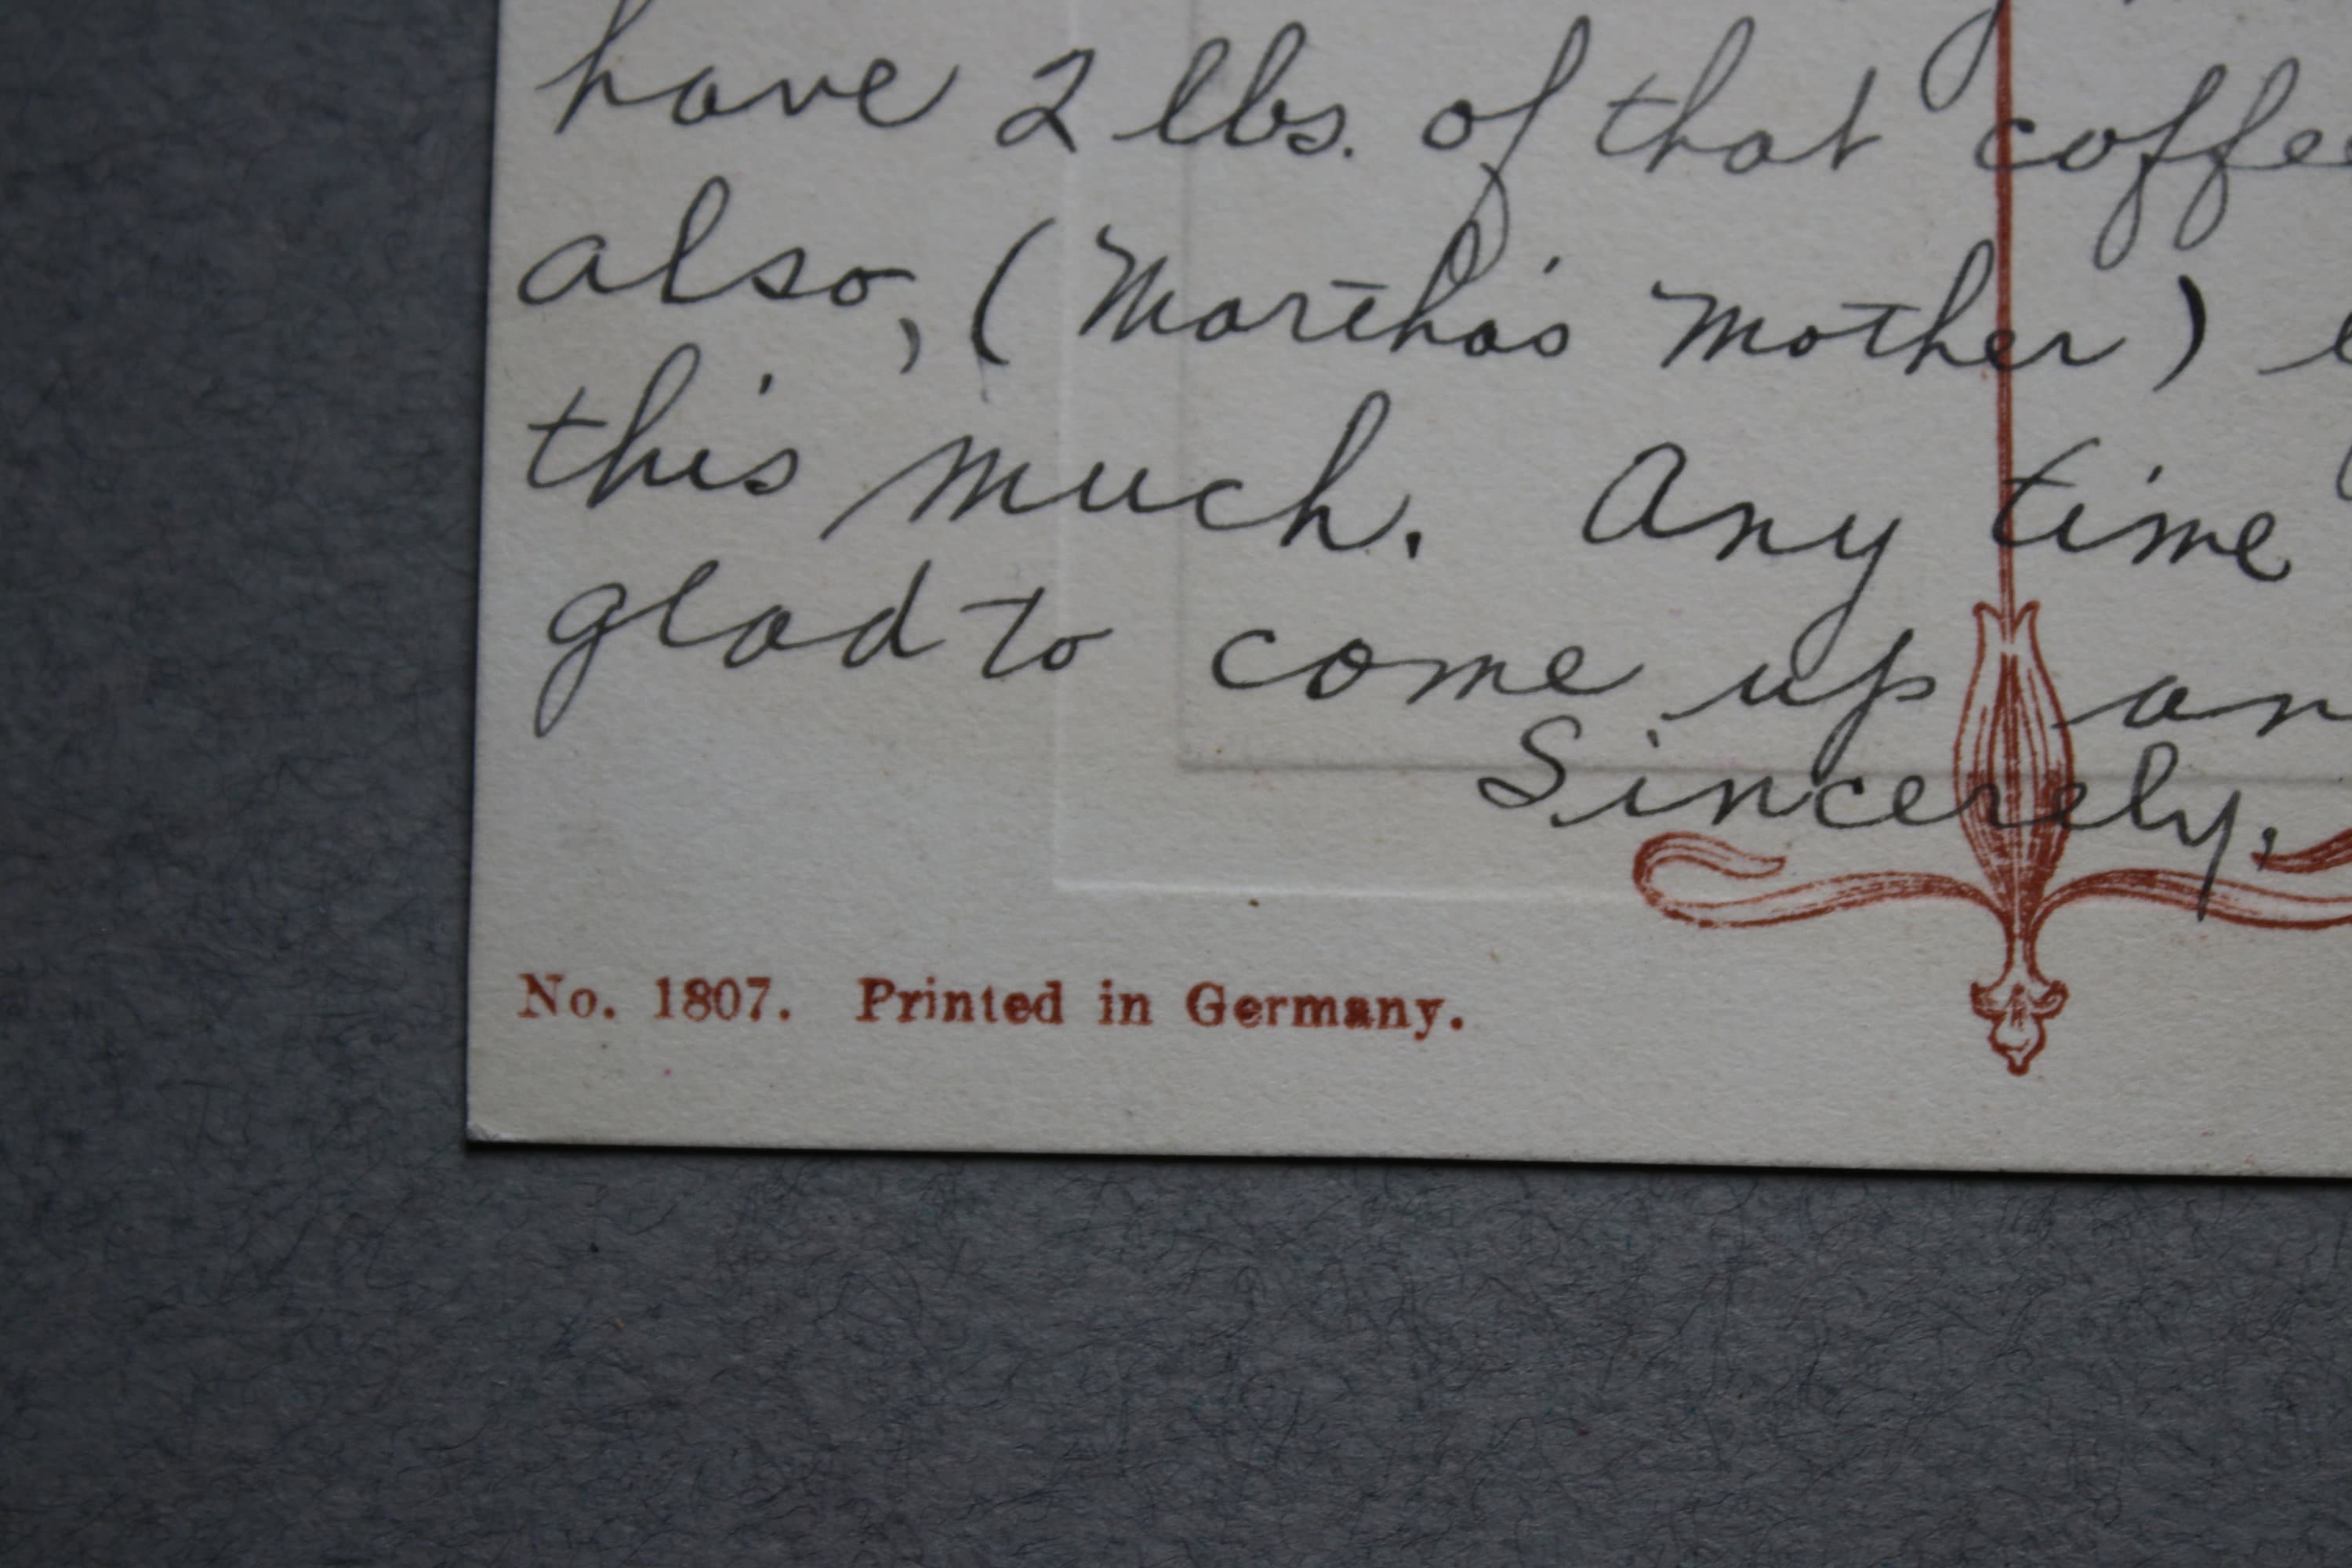 have 2 lbs. of that coffee
also, (Martha's Mother)
this much. Any time
glad to come up an
Sincerely,
No. 1807. Printed in Germany.